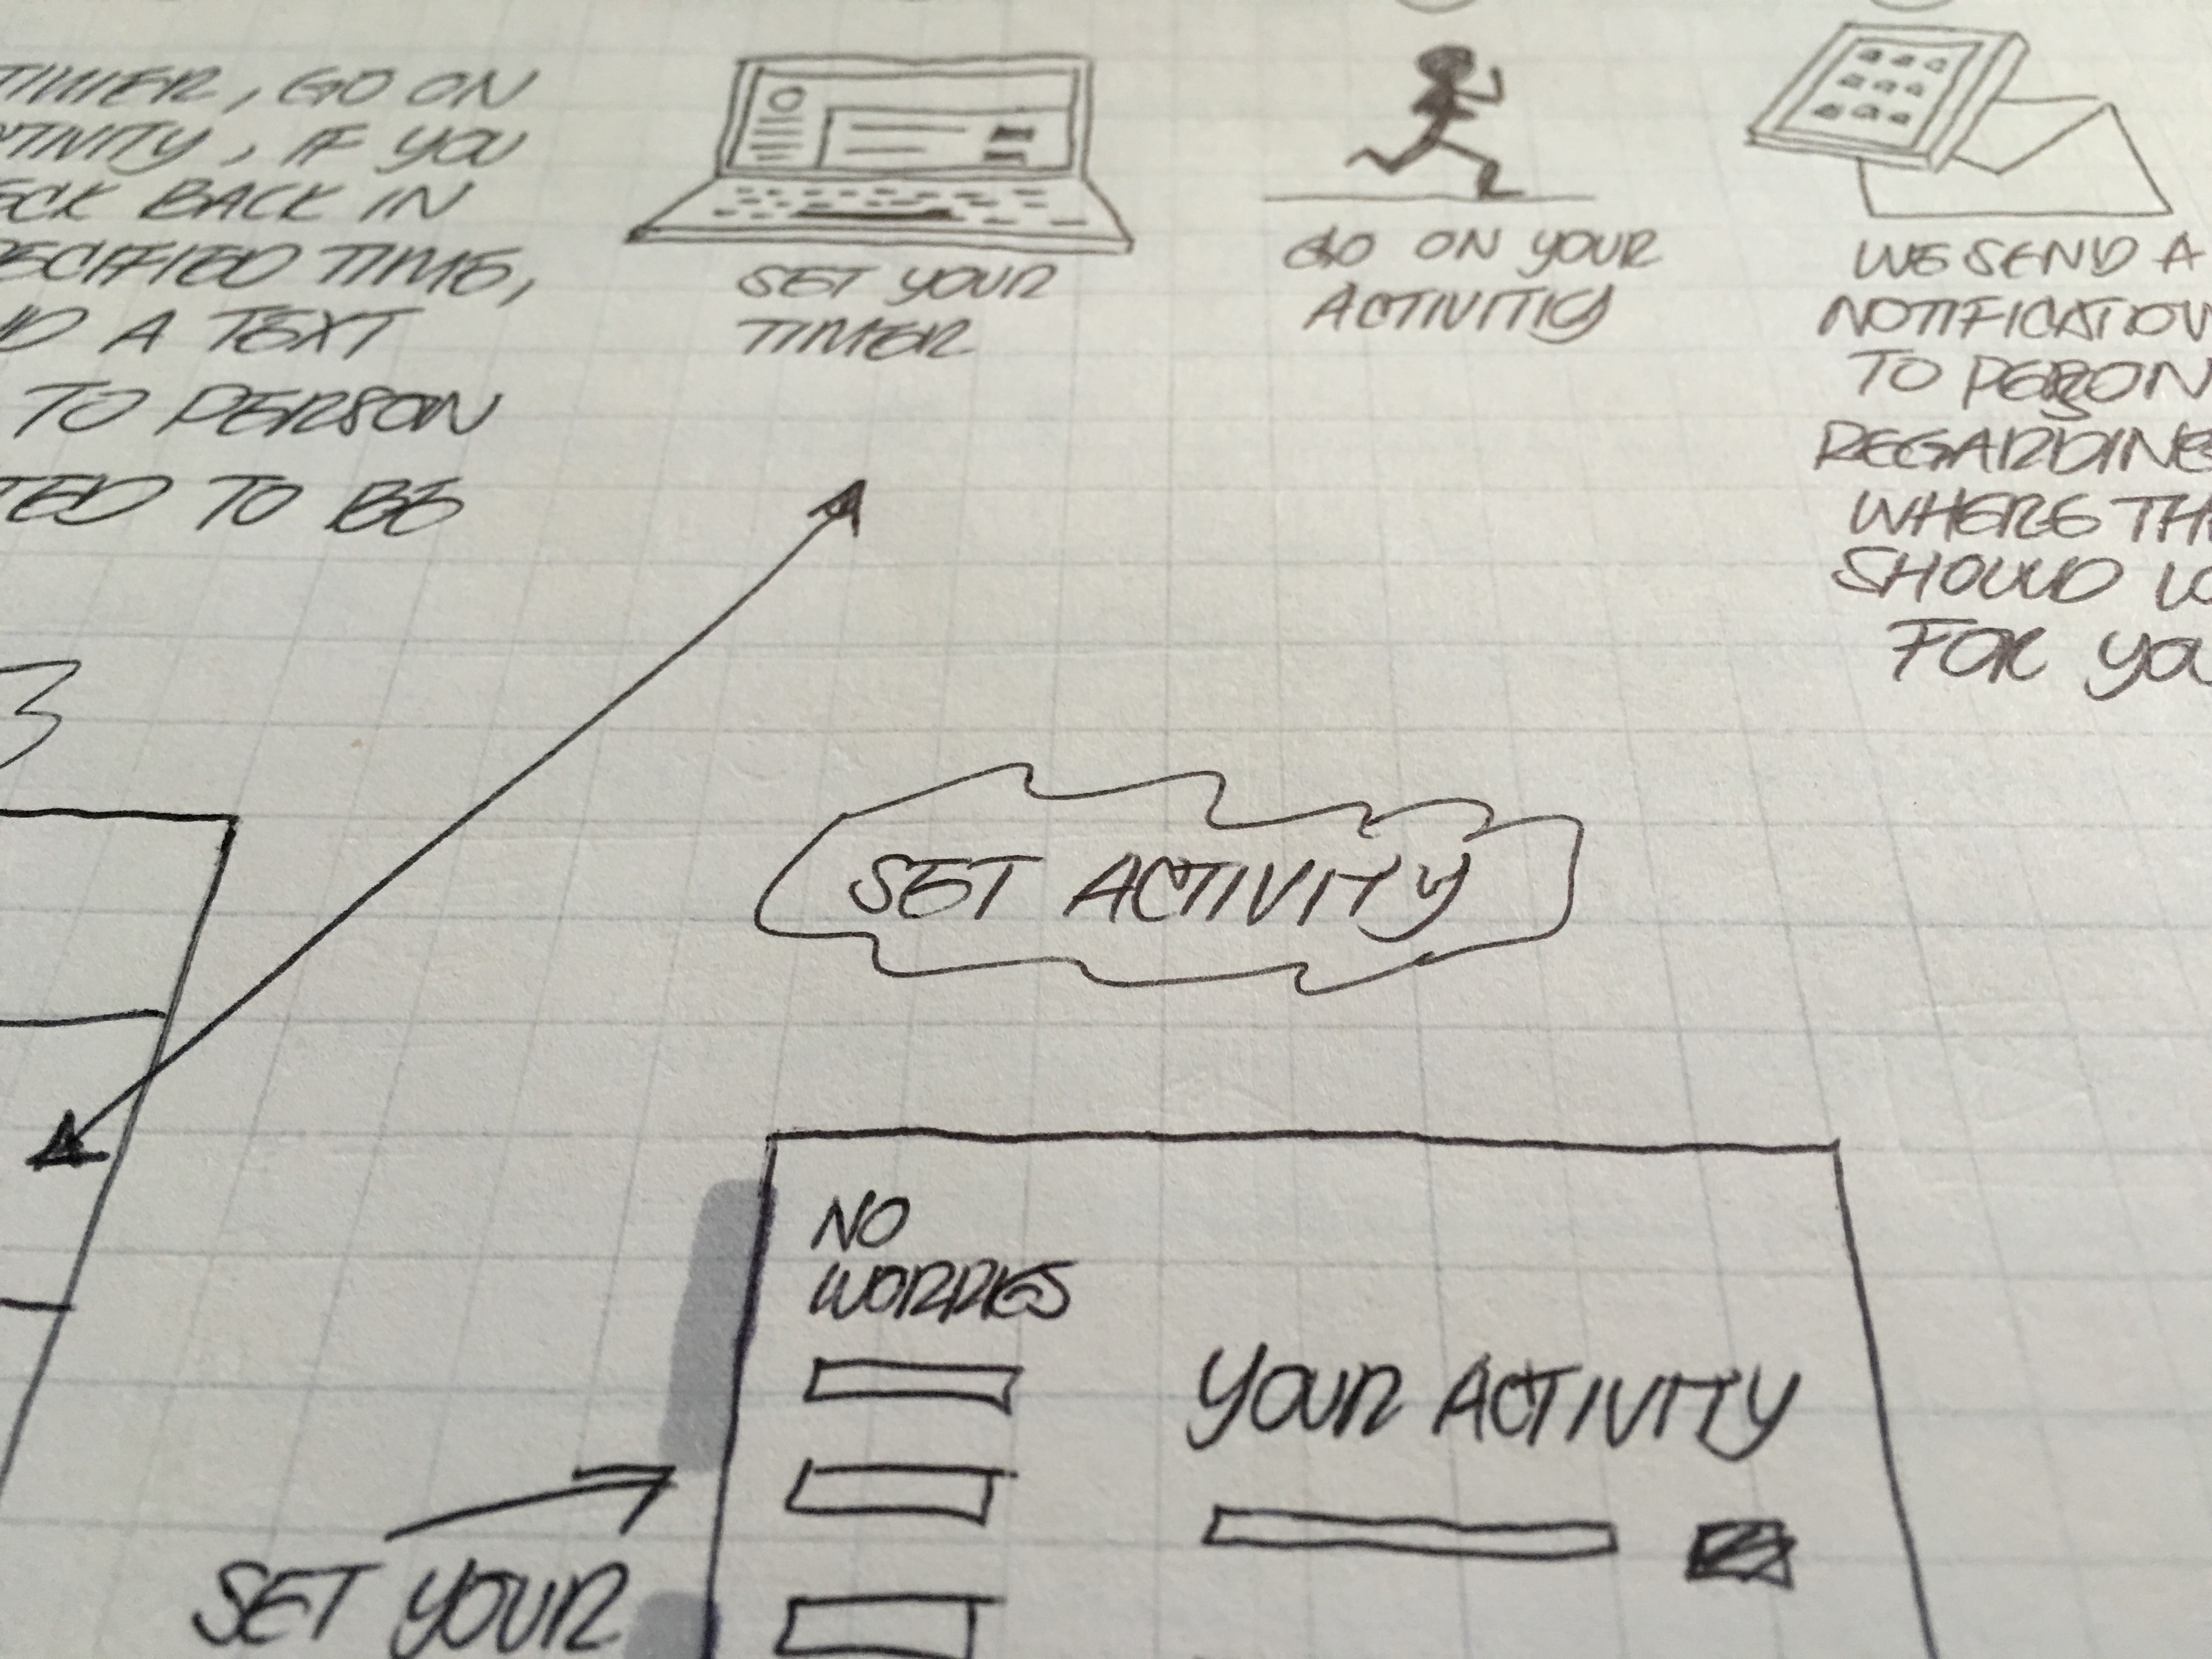 TIMER, GO ON
IF YOU
BACK IN
TIME,
A TEXT
TO PERSON
TO BE
SET YOUR
TIMER
GO ON YOUR
ACTIVITIY
WE SEND A
NOTIFICATION
TO PERSON
REGARDING
WHERE
SHOULD
FOR
3
SET ACTIVITY
NO
WORRIES
YOUR ACTIVITY
SET YOUR